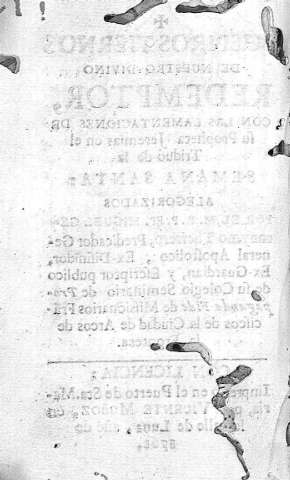 DE NUESTRO DIVINO
REDEMPTOR,
CON LAS LAMENTACIONES DE
su Propheta Jeremias en el
Triduo de la
SEMANA SANTA;
ALEGORIZADOS
POR EL M. R. P. Fr. MIGUEL
Predicador Ge-
neral Apostolico, Ex-Difinidor,
Ex-Guardian, y Escriptor publico
de su Colegio Seminario de Pro-
paganda Fide de Missionarios Frã-
ciscos de la Ciudad de Arcos de
LICENCIA:
en el Puerto de Sta. Ma-
ria, por VICENTE MUÑOZ, en
la calle de Luna, año de